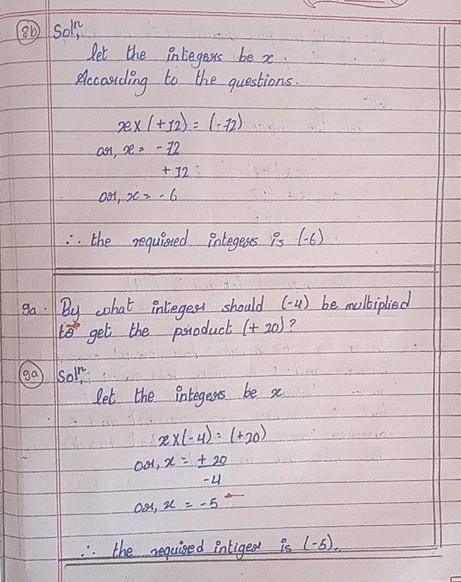 8b) Solⁿ,
let the integers be x.
According to the questions.
x×(+12) = (-72)
or, x = -72
+12
or, x = -6
∴ the required integers is (-6)
9a. By what integer should (-4) be multiplied
to get the product (+20)?
9a) Solⁿ,
let the integers be x
x×(-4) = (+20)
or, x = +20
-4
or, x = -5
∴ the required intiger is (-5).